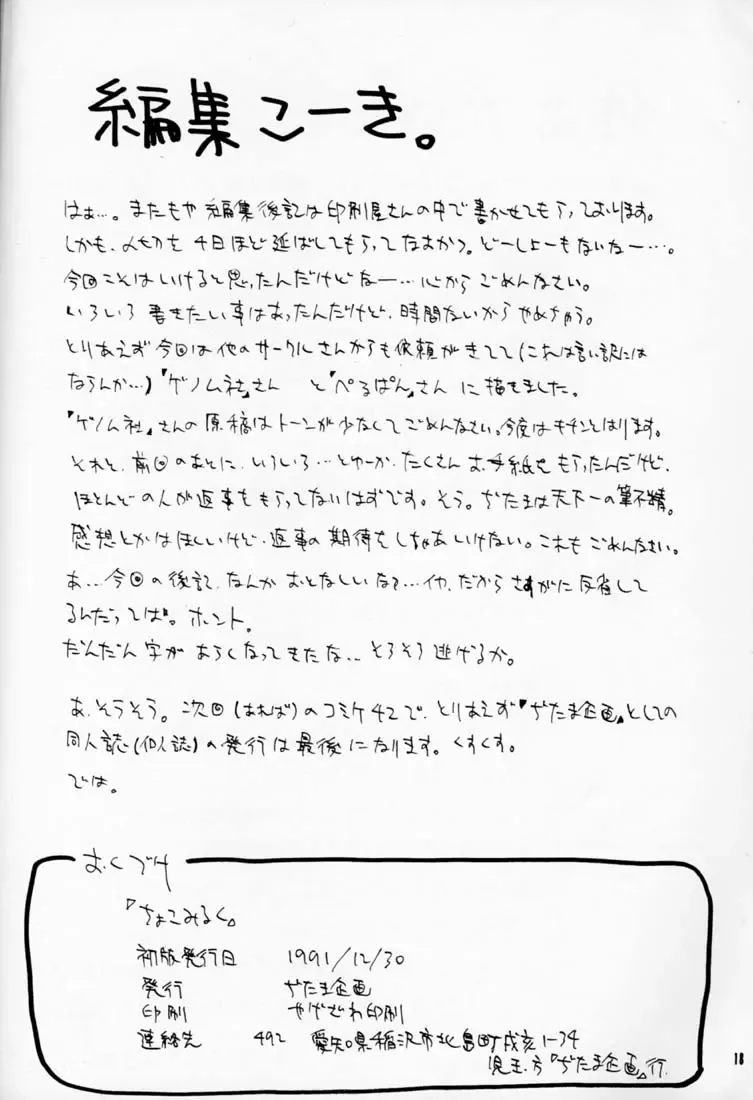 編集こーき。
はぁ…。またもや編集後記は印刷屋さんの中で書かせてもらっております。
しかも、〆切を4日ほど延ばしてもらってなおかつ。どーしょーもないなー…。
今回こそはいけると思ったんだけどなー…心からごめんなさい。
いろいろ書きたい事はあったんだけど、時間ないからやめちゃう。
とりあえず今回は他のサークルさんからも依頼がきてて(これは言い訳には
ならんか…)『ゲノム社』さん と『ぺるぱん』さん に描きました。
『ゲノム社』さんの原稿はトーンが少なくてごめんなさい。今度はキチンとはります。
それと、前回のあとに、いろいろ…とゆーか、たくさんお手紙をもらったんだけど、
ほとんどの人が返事をもらってないはずです。そう。ぢたまは天下一の筆不精。
感想とかはほしいけど、返事の期待をしちゃあいけない。これもごめんなさい。
あ…今回の後記、なんかおとなしいなぁ…イヤ、だからさすがに反省して
るんだってば。ホント。
だんだん字があらくなってきたな… そろそろ逃げるか。
あ、そうそう。次回(あれば)のコミケ42で、とりあえず『ぢたま企画』としての
同人誌(個人誌)の発行は最後になります。くすくす。
では。
おくづけ
『ちょこみるく』
初版発行日 1991/12/30
発行 ぢたま企画
印刷 やげざわ印刷
連絡先 492 愛知県稲沢市北島町戌亥1-34
児玉方『ぢたま企画』行
18